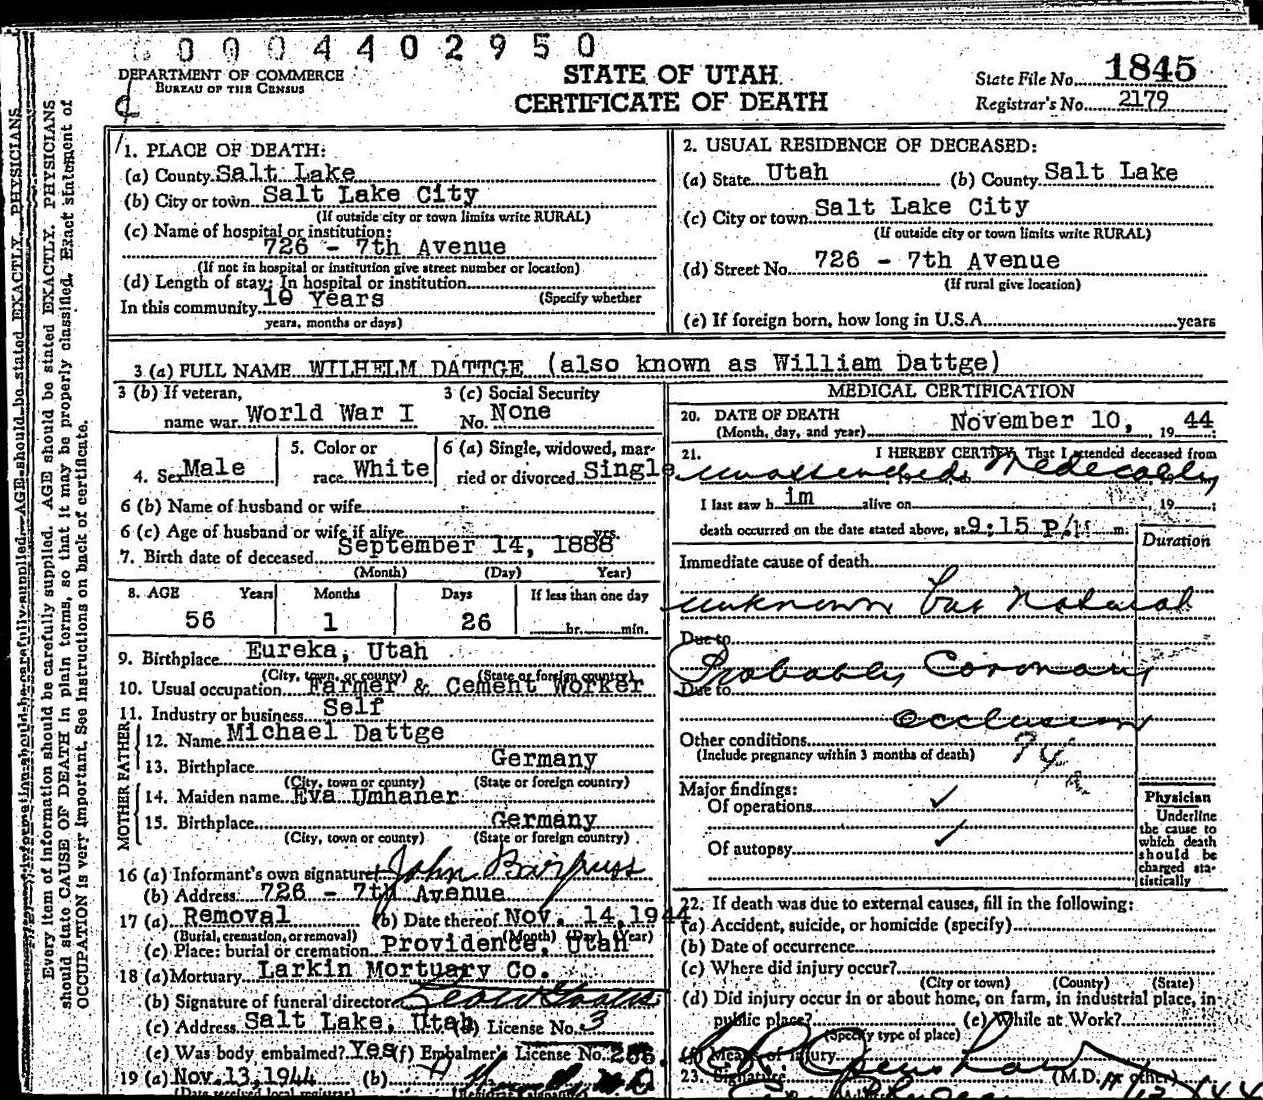 0 0 0 4 4 0 2 9 5 0
DEPARTMENT OF COMMERCE
BUREAU OF THE CENSUS
STATE OF UTAH
CERTIFICATE OF DEATH
State File No. 1845
Registrar's No. 2179
Every item of information should be carefully supplied. AGE should be stated EXACTLY. PHYSICIANS
should state CAUSE OF DEATH in plain terms, so that it may be properly classified. Exact statement of
OCCUPATION is very important. See instructions on back of certificate.
1. PLACE OF DEATH:
(a) County Salt Lake
(b) City or town Salt Lake City
(If outside city or town limits write RURAL)
(c) Name of hospital or institution:
726 - 7th Avenue
(If not in hospital or institution give street number or location)
(d) Length of stay: In hospital or institution
In this community 10 Years (Specify whether
years, months or days)
2. USUAL RESIDENCE OF DECEASED:
(a) State Utah (b) County Salt Lake
(c) City or town Salt Lake City
(If outside city or town limits write RURAL)
(d) Street No. 726 - 7th Avenue
(If rural give location)
(e) If foreign born, how long in U.S.A. years
3 (a) FULL NAME WILHELM DATTGE (also known as William Dattge)
3 (b) If veteran,
name war World War I
3 (c) Social Security
No. None
4. Sex Male
5. Color or
race White
6 (a) Single, widowed, mar-
ried or divorced Single
6 (b) Name of husband or wife
6 (c) Age of husband or wife if alive yrs.
7. Birth date of deceased September 14, 1888
(Month) (Day) Year)
8. AGE Years Months Days If less than one day
56 1 26 hr. min.
9. Birthplace Eureka, Utah
(City, town, or county) (State or foreign country)
10. Usual occupation Farmer & Cement Worker
11. Industry or business Self
FATHER
12. Name Michael Dattge
13. Birthplace Germany
(City, town or county) (State or foreign country)
MOTHER
14. Maiden name Eva Umhaner
15. Birthplace Germany
(City, town or county) (State or foreign country)
16 (a) Informant's own signature John
(b) Address 726 - 7th Avenue
17 (a) Removal (b) Date thereof Nov. 14, 1944
(Burial, cremation, or removal) (Month) (Day) (Year)
(c) Place: burial or cremation Providence, Utah
18 (a) Mortuary Larkin Mortuary Co.
(b) Signature of funeral director
(c) Address Salt Lake, Utah (d) License No. 3
(e) Was body embalmed? Yes (f) Embalmer's License No. 266.
19 (a) Nov. 13, 1944 (b)
(Date received local registrar)
MEDICAL CERTIFICATION
20. DATE OF DEATH
(Month, day, and year) November 10, 19 44
21. I HEREBY CERTIFY, That I attended deceased from
unattended Medically
I last saw h im alive on 19
death occurred on the date stated above, at 9:15 P/M m.
Duration
Immediate cause of death
unknown but Natural
Due to
Probably Coronary
Due to
occlusion
Other conditions
(Include pregnancy within 3 months of death)
94
Major findings:
Of operations ✓
Of autopsy ✓
Physician
Underline
the cause to
which death
should be
charged sta-
tistically
22. If death was due to external causes, fill in the following:
(a) Accident, suicide, or homicide (specify)
(b) Date of occurrence
(c) Where did injury occur?
(City or town) (County) (State)
(d) Did injury occur in or about home, on farm, in industrial place, in
public place? (e) While at Work?
(Specify type of place)
(f) Means of injury
23. Signature (M.D. or other)